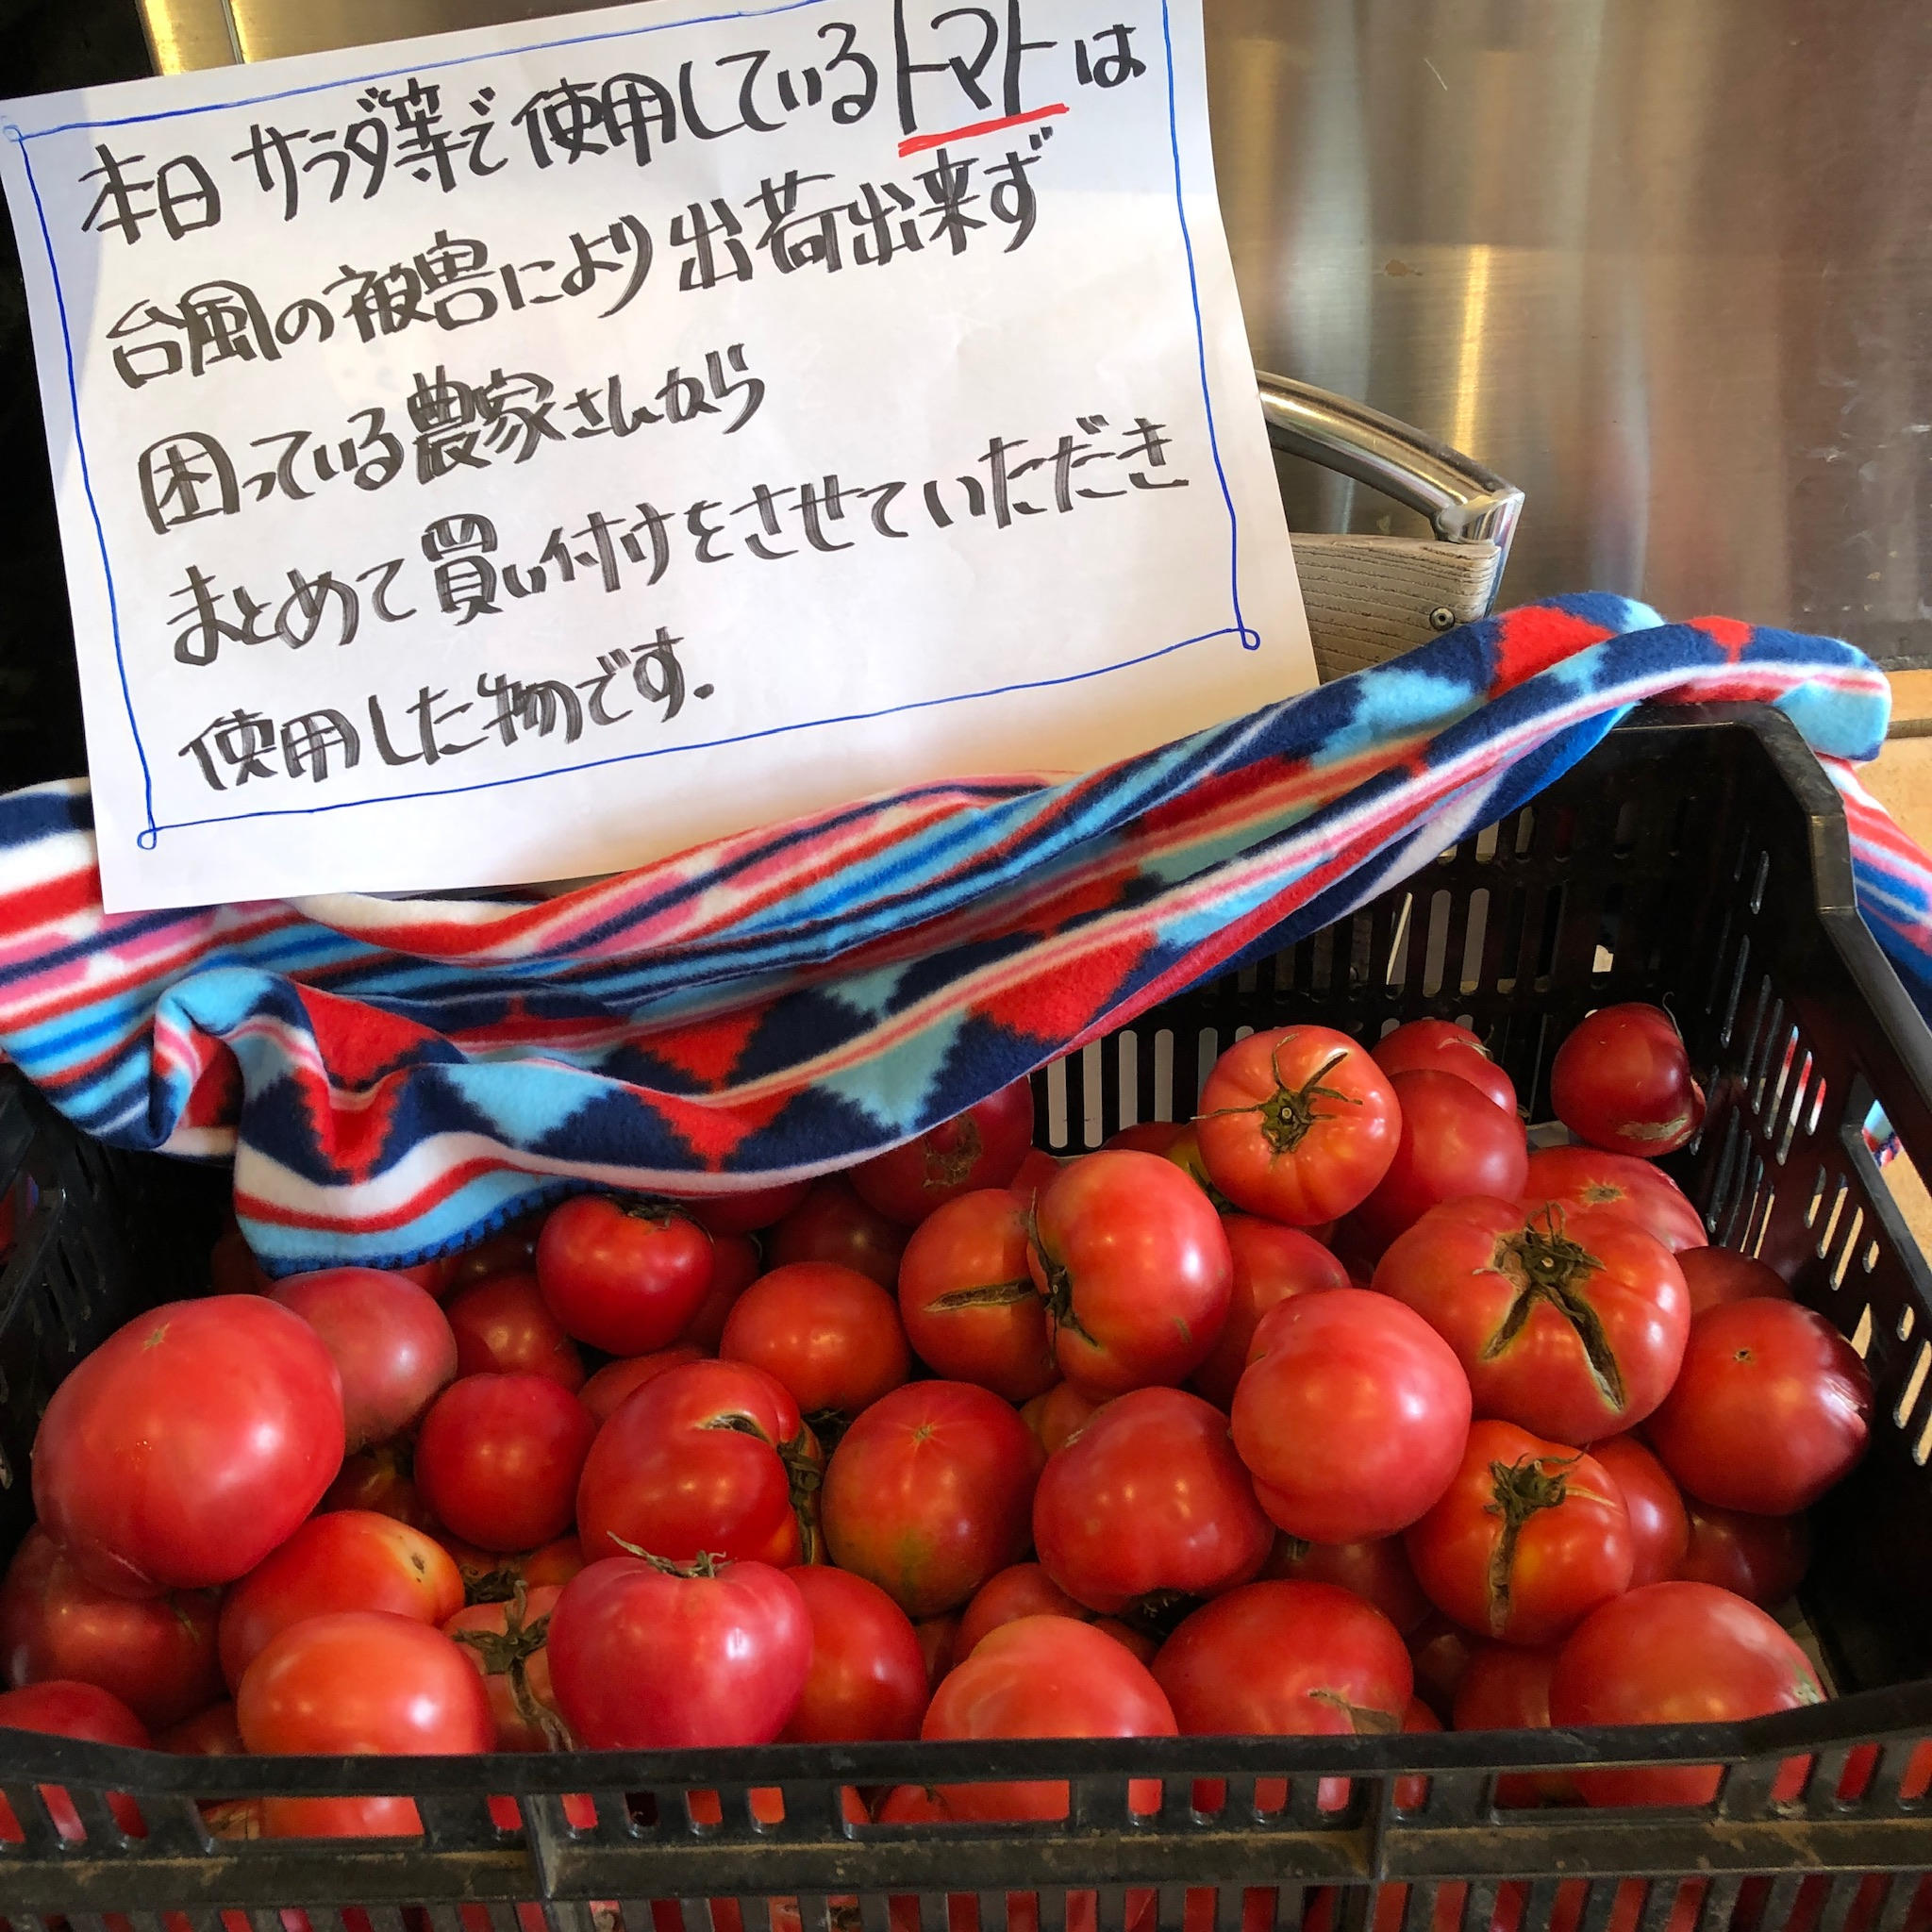 本日サラダ等で使用しているトマトは
台風の被害により出荷出来ず
困っている農家さんから
まとめて買い付けをさせていただき
使用した物です.